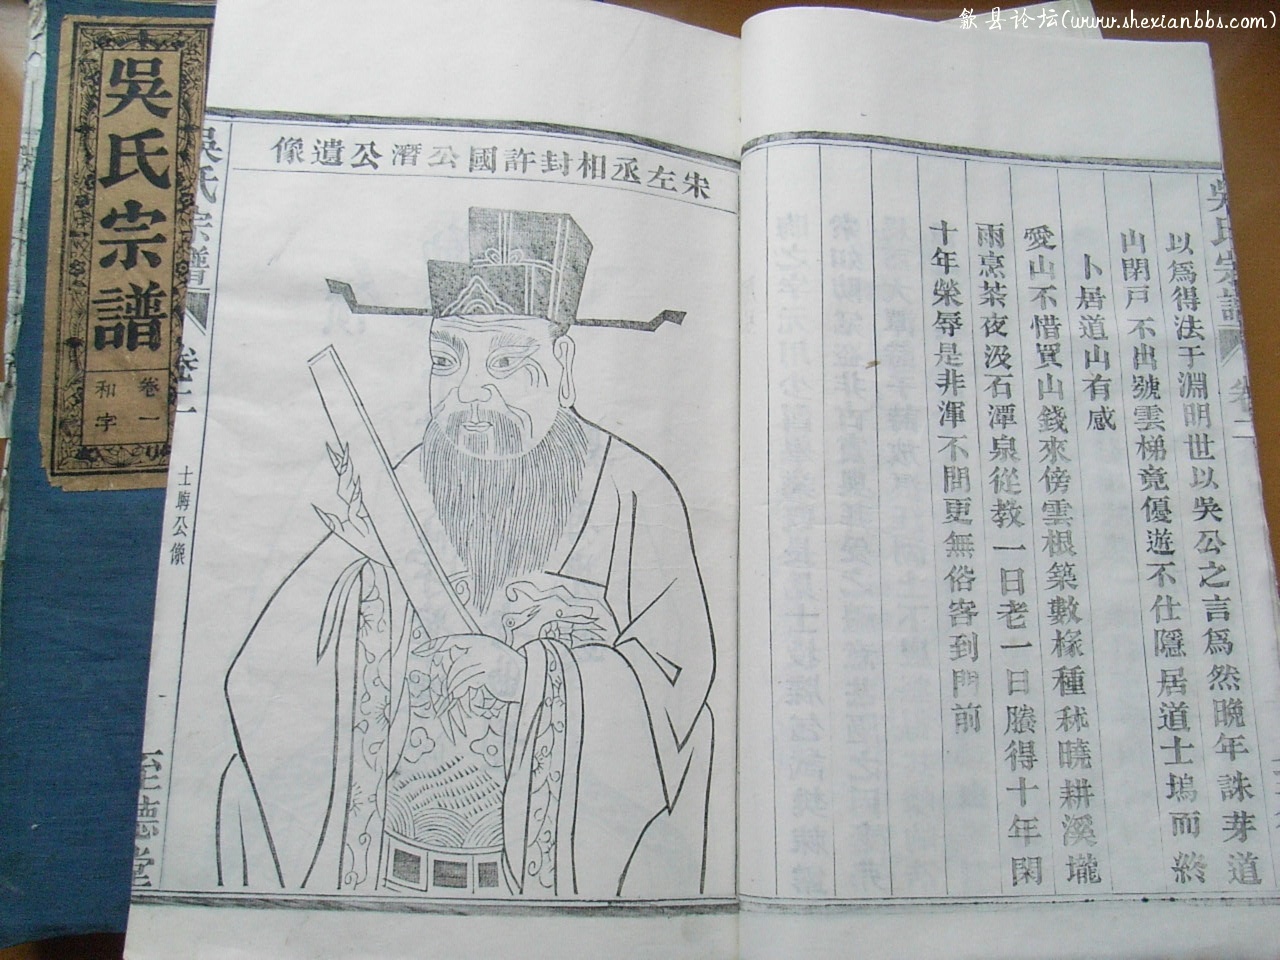 歙县论坛(www.shexianbbs.com)
吳氏宗譜
卷一
和字
吳氏宗譜
卷二
以爲得法于淵明世以吳公之言爲然晚年誅茅道
山閉戸不出號雲梯竟優遊不仕隱居道士塢而終
卜居道山有感
愛山不惜買山錢來傍雲根築數椽種秫曉耕溪壠
雨烹茶夜汲石潭泉從教一日老一日賸得十年閑
十年榮辱是非渾不問更無俗客到門前
宋左丞相封許國公潛公遺像
吳氏宗譜
卷二
士晦公像
至德堂